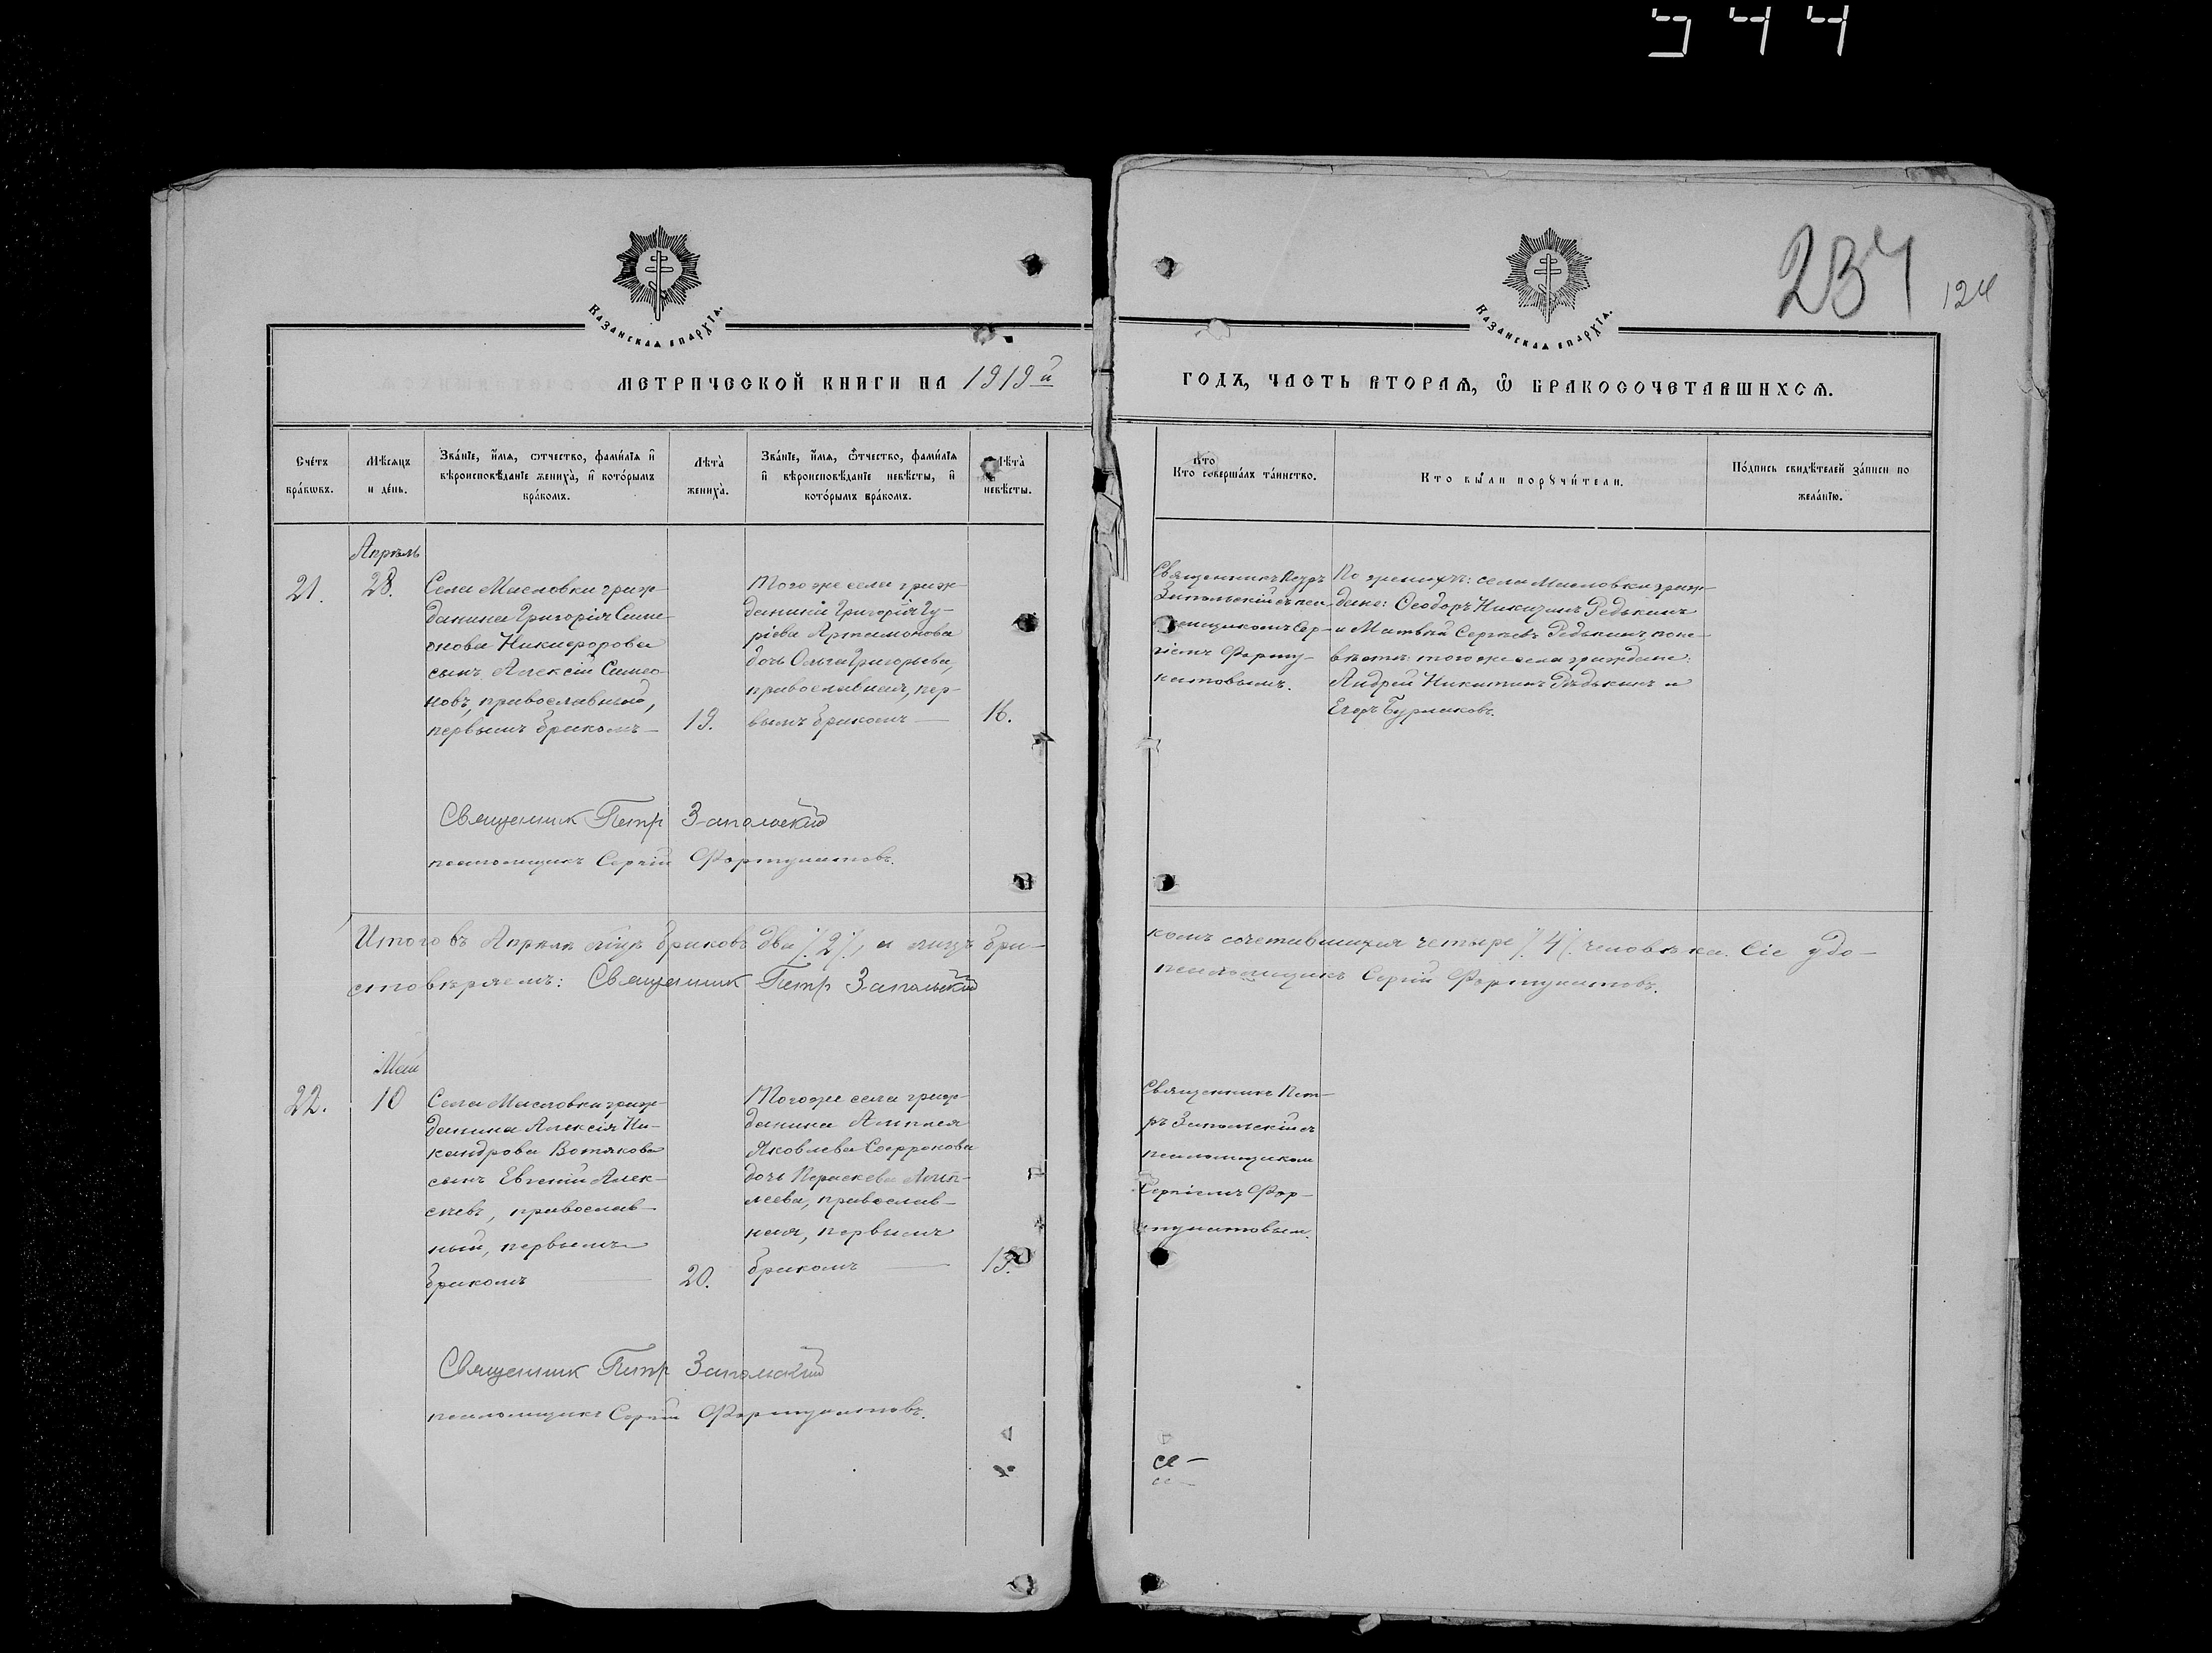 944
234
124
Казанская епархїа.
Казанская епархїа.
Метрической книги на 1919й
годъ, часть вторая, ѿ бракосочетавшихся.
Счетъ браковъ.
Мѣсяцъ и день.
Званїе, имя, отчество, фамилїя и вѣроисповѣданїе жениха, и которымъ бракомъ.
Лѣта жениха.
Званїе, имя, отчество, фамилїя и вѣроисповѣданїе невѣсты, и которымъ бракомъ.
Лѣта невѣсты.
Кто совершалъ таинство.
Кто были поручители.
Подпись свидѣтелей записи по желанїю.
Апрѣль
21.
28.
Села Масловки граж-
данина Григорія Симе-
онова Никифорова
сынъ Алексій Симео-
новъ, православный,
первымъ бракомъ
19.
Того же села граж-
данина Григорія Гу-
рієва Артамонова
дочь Ольга Григорьева,
православная, пер-
вымъ бракомъ
16.
Священникъ Петръ
Запольскій съ пса-
ломщикомъ Сер-
гіемъ Форту-
натовымъ.
По женихѣ: села Масловки граж-
дане: Ѳеодоръ Никитинъ Редькинъ
и Матвѣй Сергѣевъ Редькинъ, по не-
вѣстѣ: того же села граждане:
Андрей Никитинъ Рѣдькинъ и
Егоръ Бурлаковъ.
Священник Петр Запольский
псаломщикъ Сергій Фортунатовъ.
Итого въ Апрѣлѣ м҃цѣ браковъ два /.2/., а лицъ бра-
комъ сочетавшихся четыре /.4/. человѣка. Сіе удо-
стовѣряемъ: Священник Петр Запольский
псаломщикъ Сергій Фортунатовъ.
Май
22.
10
Села Масловки граж-
данина Алексія Ни-
кандрова Вотякова
сынъ Евгеній Алек-
сѣевъ, православ-
ный, первымъ
бракомъ
20.
Того же села граж-
данина
Яковлева Софронова
дочь Параскева
православ-
ная, первымъ
бракомъ
19.
Священникъ Пет-
ръ Запольскій съ
псаломщикомъ
Сергіемъ Фор-
тунатовым.
Священник Петр Запольский
псаломщикъ Сергій Фортунатовъ.